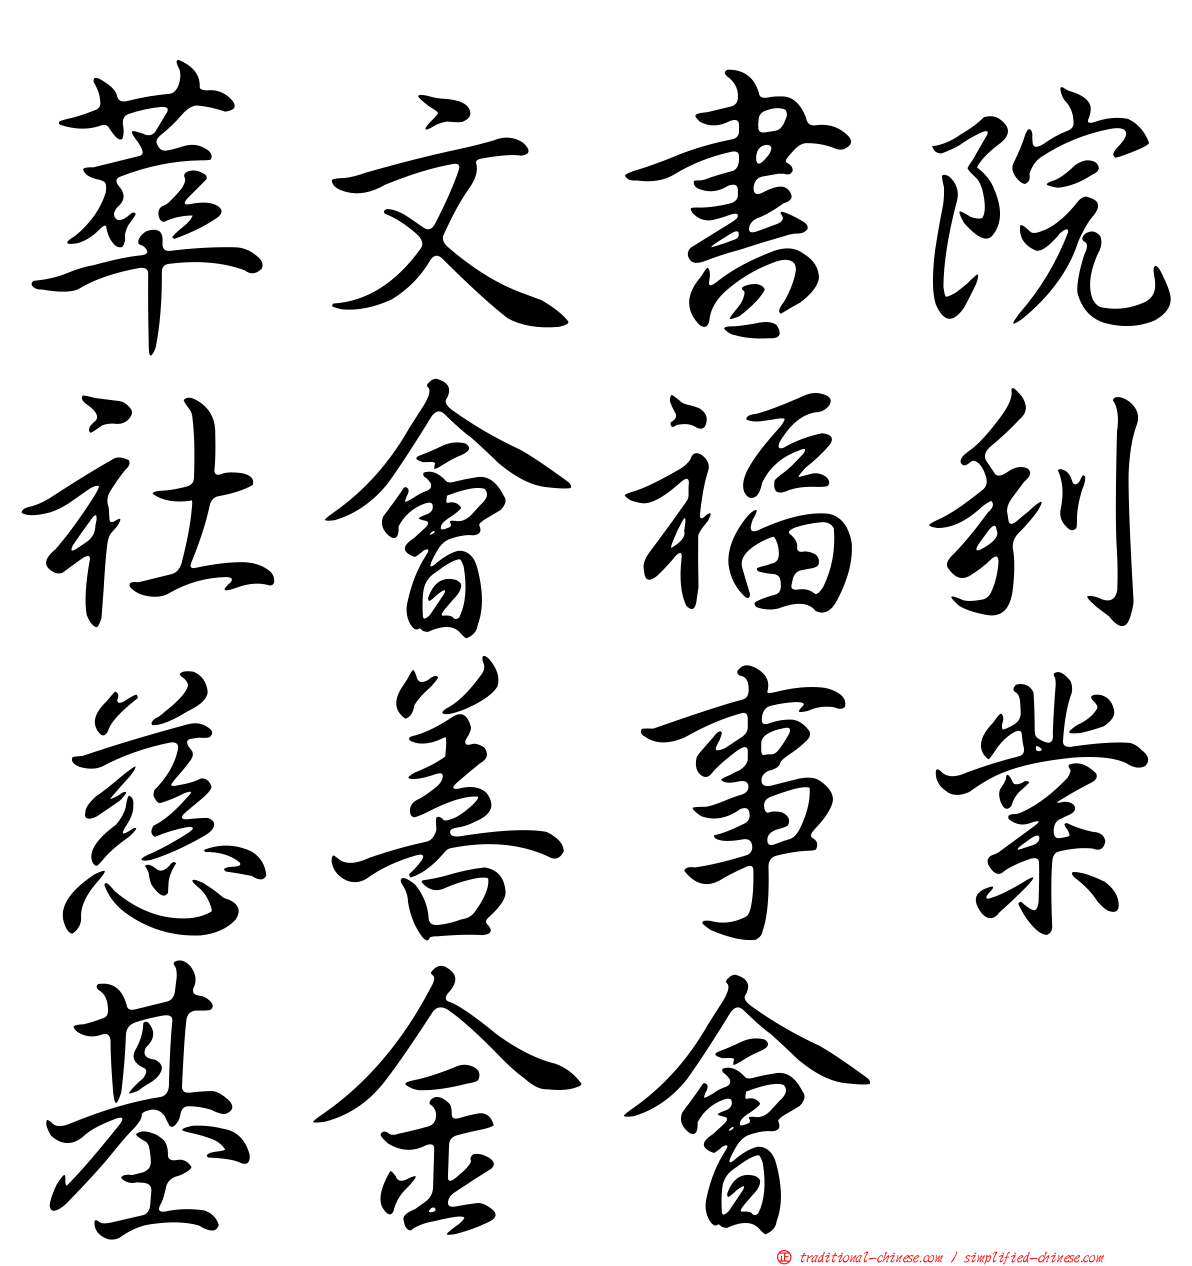 萃文書院
社會福利
慈善事業
基金會
正 traditional-chinese.com / simplified-chinese.com